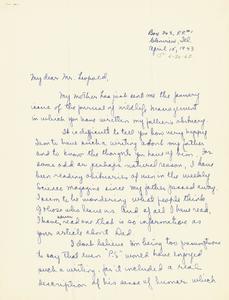 Box 243, RR#1
Glenview, Ill.
April 15, 1943
My dear Mr. Leopold,
My mother has just sent me the January
issue of the journal of wildlife management
in which you have written my father's obituary.
It is difficult to tell you how very happy
I am to have such a writing about my father
and to know the thoughts you have of him. For
some odd or perhaps natural reason, I have
been reading obituaries of men in the weekly
Science magazine since my father passed away.
I seem to be wondering what people think
of those who leave us. And of all I have read,
I have never read one that is so informative as
your article about Dad.
I don't believe I'm being too presumptuous
to say that even "P.S." would have enjoyed
such a writing, for it included a real
description of his sense of humor which